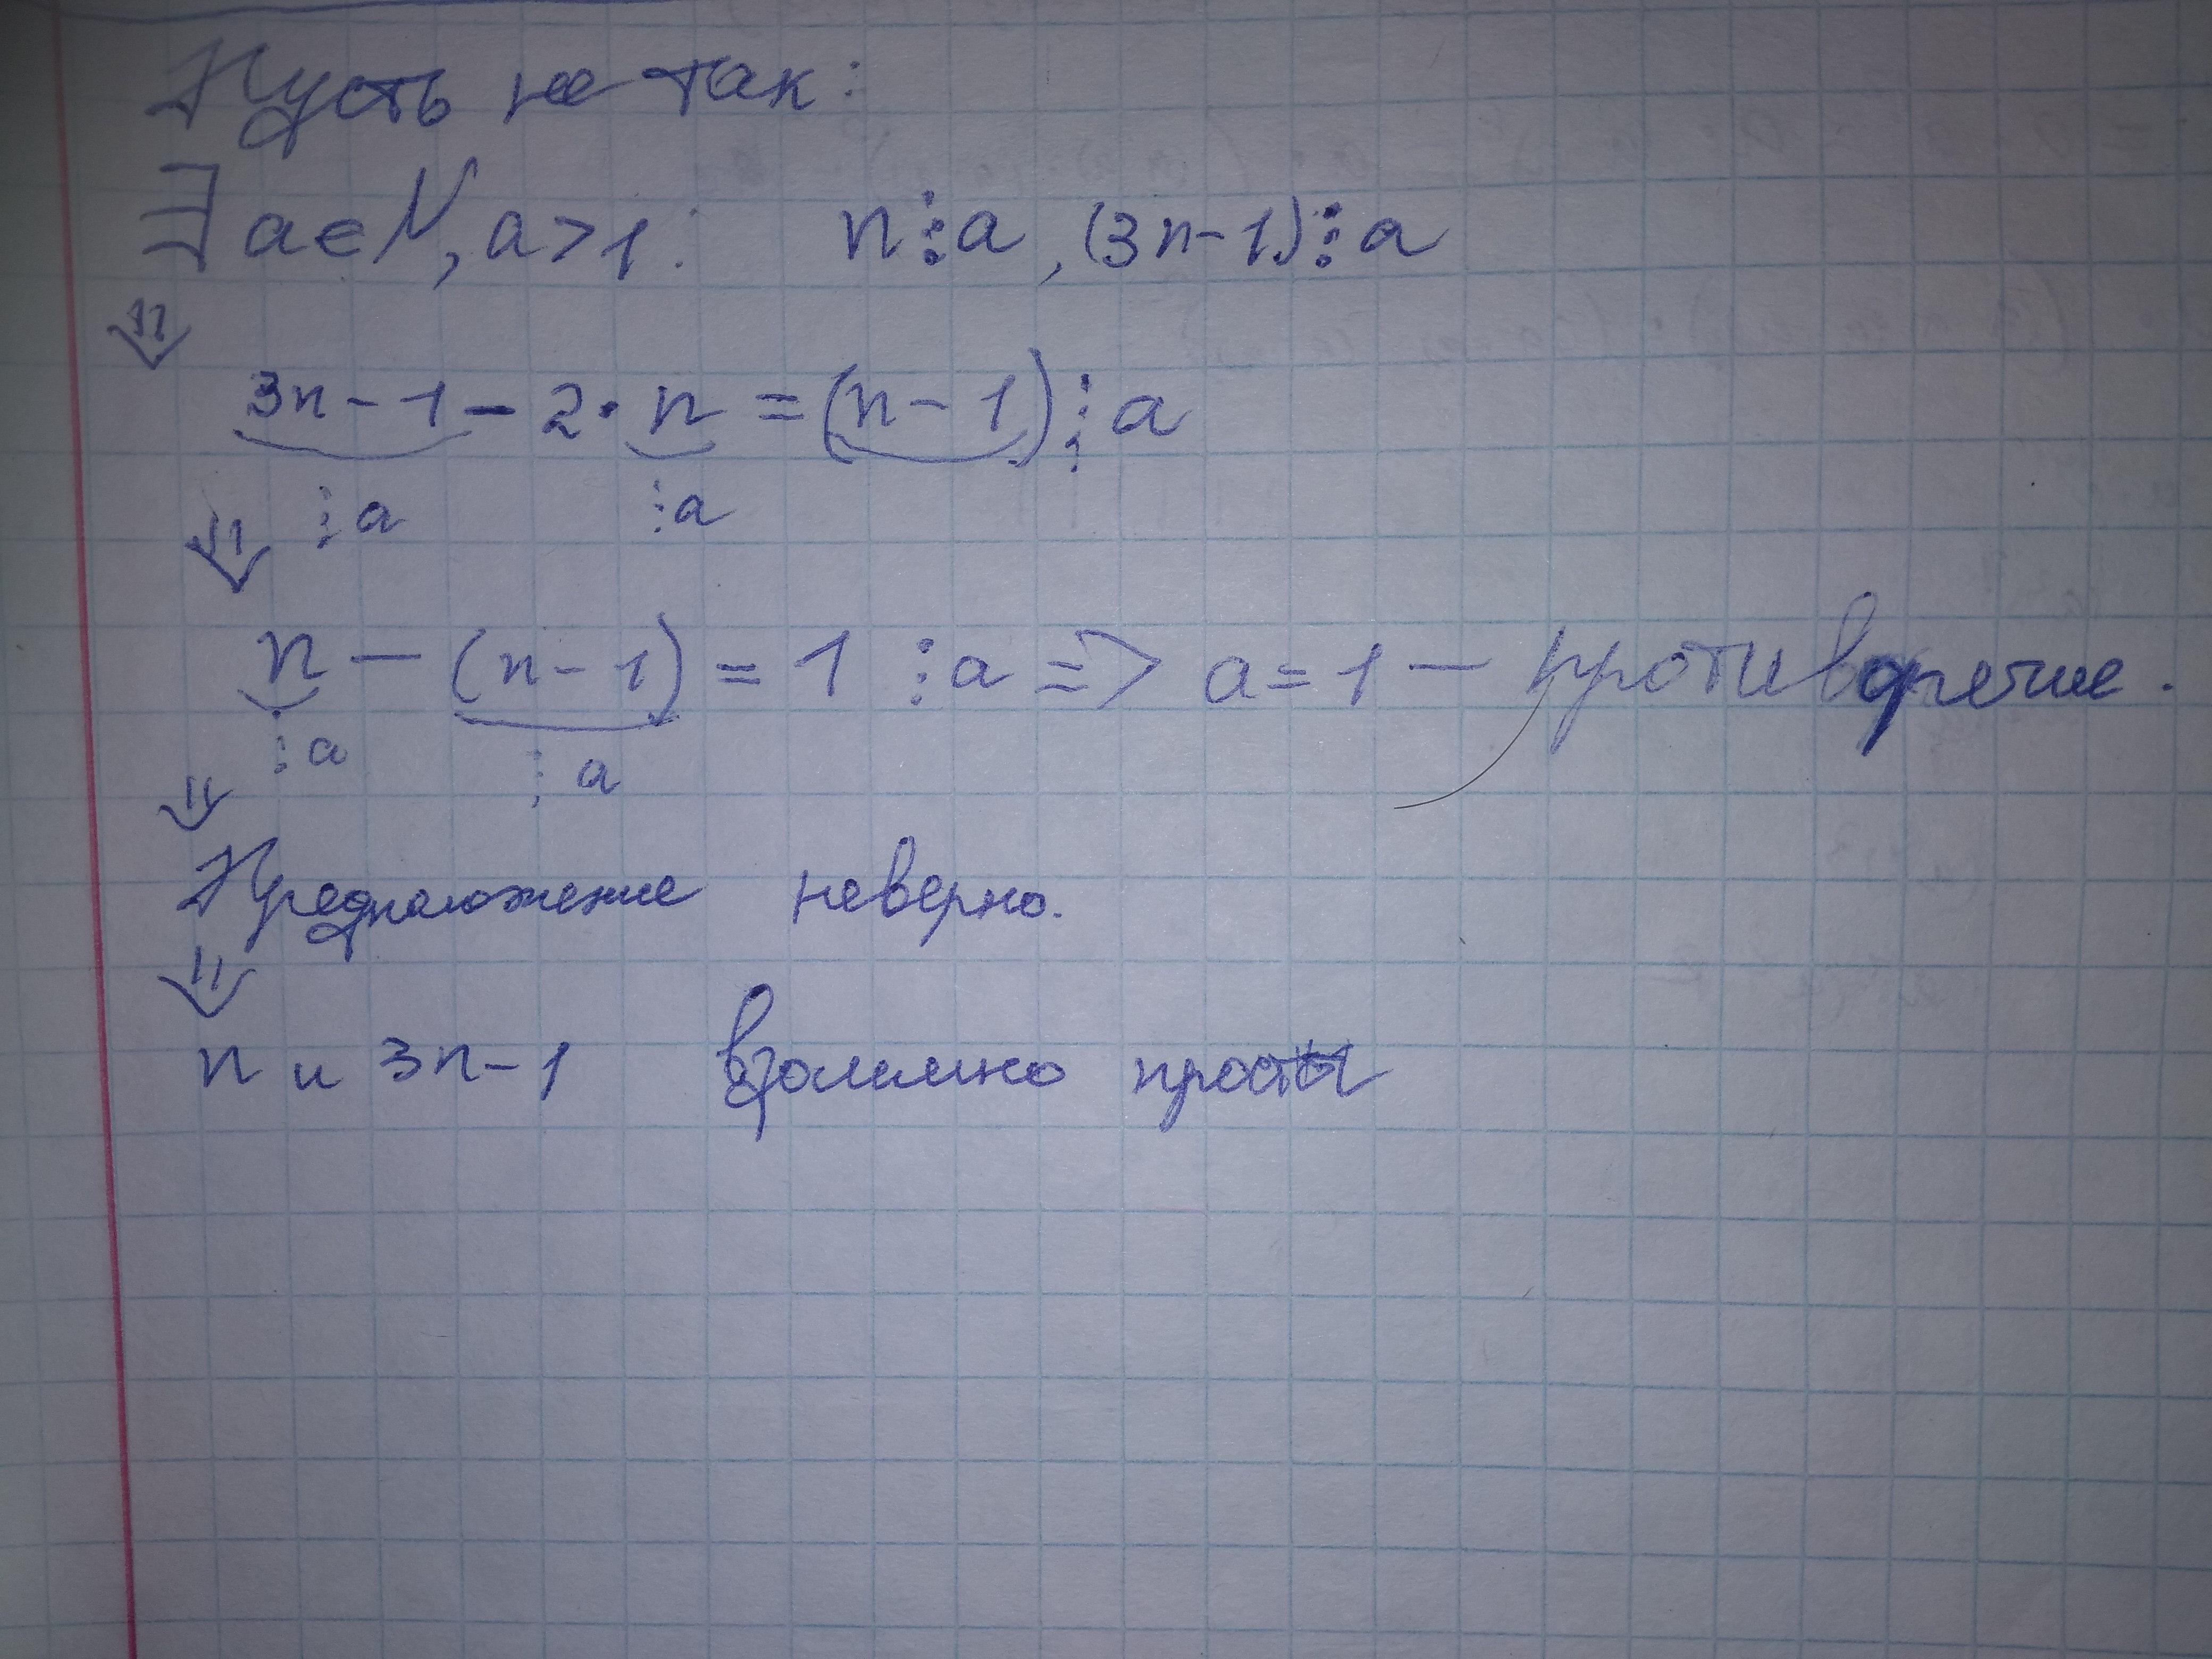 Пусть не так:
∃ a∈N, a>1: n⋮a, (3n-1)⋮a
⇓
3n-1-2·n=(n-1)⋮a
⋮a ⋮a
⇓
n-(n-1)=1⋮a=>a=1- противоречие.
⋮a ⋮a
⇓
Предположение неверно.
⇓
n и 3n-1 взаимно просты